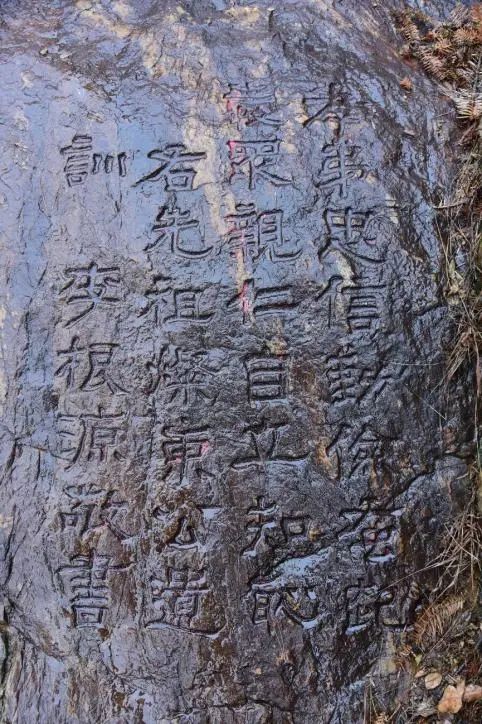 孝弟忠信勤儉
眾親仁自立知恥
右先祖燦東公遺
訓 李根源敬書